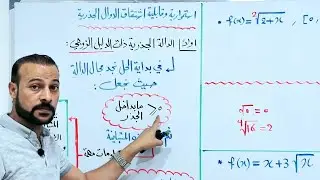 استمرارية وقابلية اشتقاق الدوال الجذرية
اولاً: الدالة الجذرية ذات الدليل الزوجي:
في بداية الحل نجد مجال الدالة
حيث نجعل
ما بداخل الجذر ≥ 0
المتباينة
• f(x) = ²√2+x , [0
√0 = 0
⁴√16 = 2
• f(x) = x + 3√x